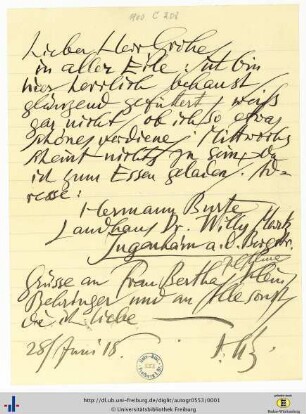 1900 C 208
Lieber Herr Grohe
in aller Eile: Ich bin
hier herrlich behaust
glänzend gefüttert, weiß
gar nicht ob ich so etwas
schönes verdiene! Mittwochs
scheint nichts zu sein, da
ich zum Essen geladen. Ad-
resse:
Hermann Burte
Landhaus Dr. Willy Merck
Jugenheim a. d. Bergstr.
Grüsse an Frau Bertha, Klein
Behringer und an Alle sonst
die ich liebe
28 Juni 18.
http://dl.ub.uni-freiburg.de/diglit/autogr0553/0001
© Universitätsbibliothek Freiburg